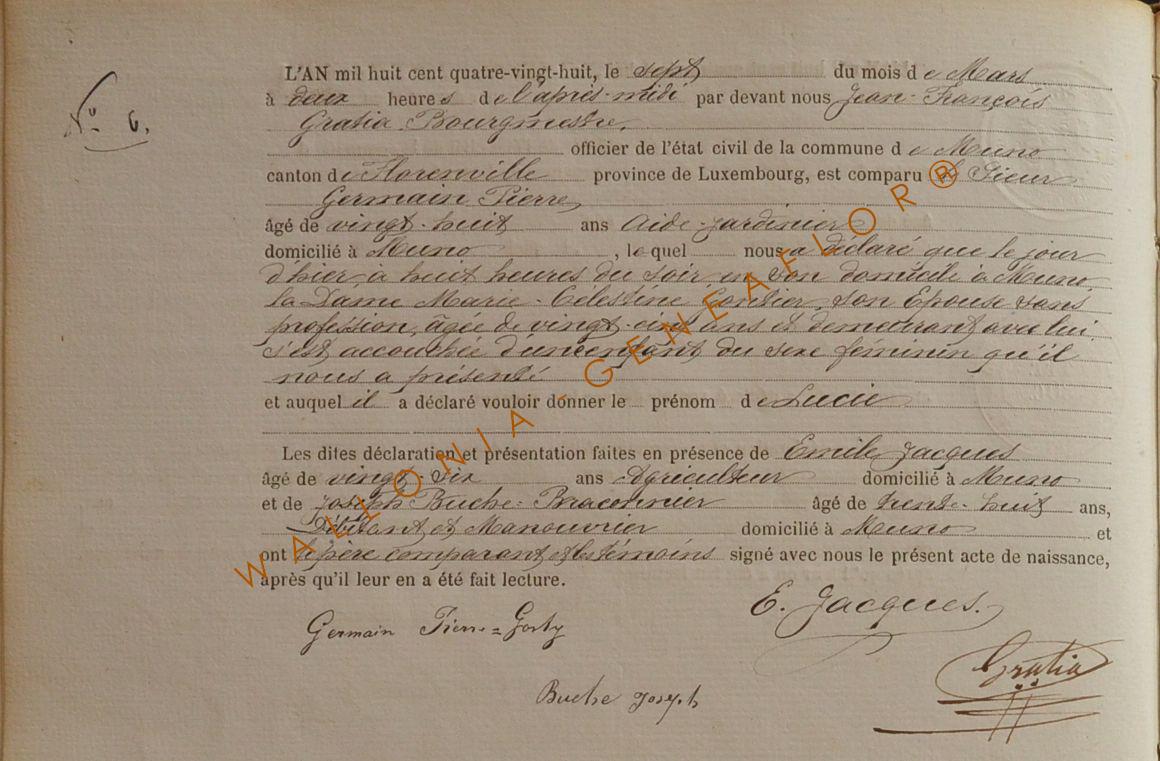 L'AN mil huit cent quatre-vingt-huit, le sept du mois de Mars
à deux heures de l'après-midi par devant nous Jean-François
Gratia Bourgmestre,
officier de l'état civil de la commune de Muno
canton de Florenville province de Luxembourg, est comparu le Sieur
Germain Pierre,
âgé de vingt-huit ans Aide-jardinier
domicilié à Muno, lequel nous a déclaré que le jour
d'hier, à huit heures du soir, en son domicile à Muno,
la Dame Marie-Celestine, son Epouse sans
profession, âgée de vingt-cinq ans et demeurant avec lui,
s'est accouchée d'un enfant du sexe féminin qu'il
nous a présenté
et auquel il a déclaré vouloir donner le prénom de Lucie
Les dites déclaration et présentation faites en présence de Emile Jacques
âgé de vingt-six ans Agriculteur domicilié à Muno
et de Joseph Buche-Braconnier âgé de trente-huit ans,
Débitant et Manouvrier domicilié à Muno et
ont le père comparant et les témoins signé avec nous le présent acte de naissance,
après qu'il leur en a été fait lecture.
N° 6.
E. Jacques.
Germain Pierre=
Gratia
Buche Joseph
WALLONIA-GENEAFLOR®